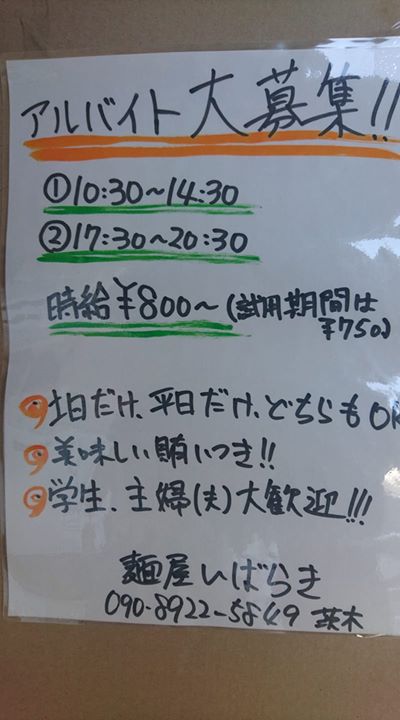 アルバイト大募集!!
①10:30~14:30
②17:30~20:30
時給¥800~(試用期間は
¥750)
土日だけ、平日だけ、どちらもOK
美味しい賄いつき!!
学生、主婦(夫)大歓迎!!!
麺屋いばらき
090-8922-5849 茨木